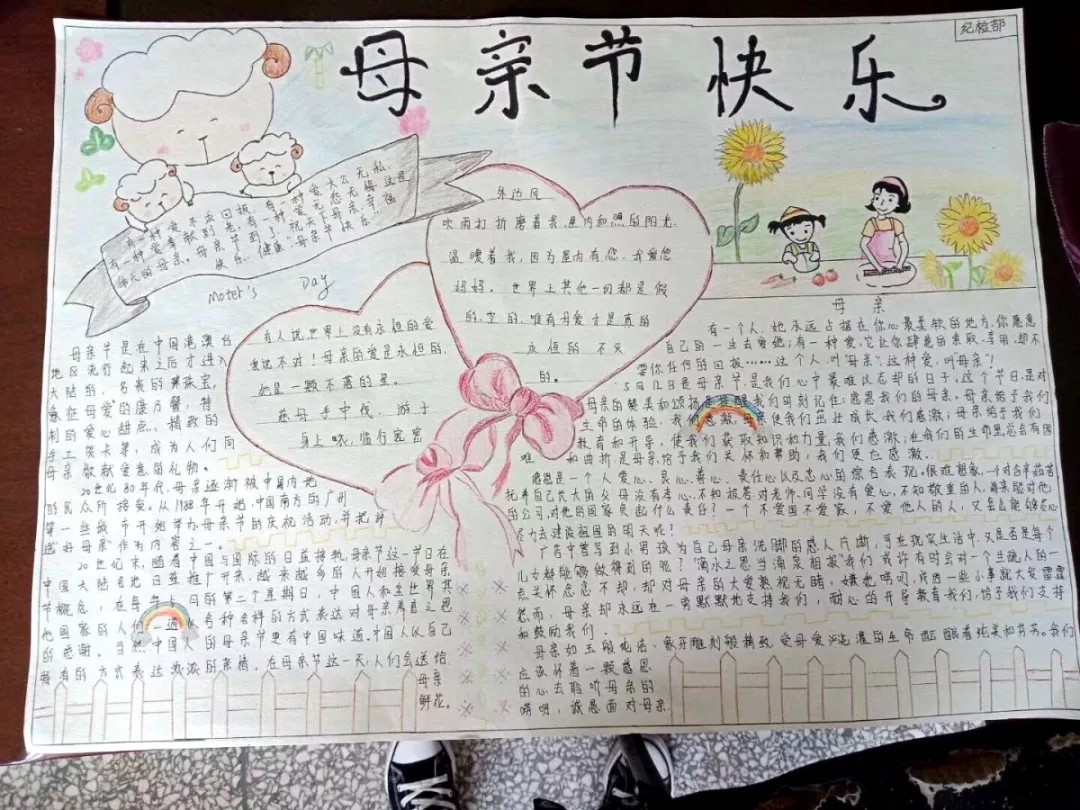 纪检部
母亲节快乐
有一种爱不求回报,有一种爱大公无私,
有一种爱奉献到老,有一种爱无怨无悔,这是
伟大的母亲。母亲节到了,祝天下母亲幸福
快乐、健康"母亲节快乐"
Moter's Day
外边风
吹雨打折磨着我,屋内和煦的阳光
温暖着我,因为屋内有您,我爱您
妈妈。世界上其他一切都是假
的,空的,唯有母爱才是真的
永恒的 不灭
的。
有人说,世界上没有永恒的爱
我说不对!母亲的爱是永恒的,
她是一颗不落的星。
慈母手中线,游子
身上
母亲节是在中国港澳台
地区流行起来之后才进入
大陆的,名贵的
象征母爱的康乃馨,特
制的爱心甜点,精致的
手工贺卡等,成为人们向
母亲献献爱意的礼物。
20世纪80年代,母亲逐渐被中国内地
的民众所接受。从1988年开始,中国南方的广州
等一些城市开始举办母亲节的庆祝活动,并把评
选"好母亲"作为内容之一。
20世纪末,随着中国与国际的日益接轨,母亲节这一节日在
中国大陆各地日益推广开来,越来越多的人开始接受母亲
节概念,在每年 月的第二个星期日,中国人和全世界其
他国家的人们 各种各样的方式表达对母亲养育之恩
的感谢。当 中国人的母亲节更有中国味道。中国人以自己
特有的方式表达浓浓的亲情。在母亲节这一天,人们会送给
母亲
鲜花。
母亲
有一个人,她永远占据在你心最柔软的地方,你愿意
自己的一生去爱她;有一种爱,它让你肆意的索取、享用,却不
要你任何的回报……这个人,叫"母亲",这种爱,叫母亲"!
5月 日是母亲节,是我们心中最难以忘却的日子。这个节日,是对
母亲的赞美和颂扬 我们时刻记住:感恩我们的母亲。母亲给予我们
生命的体验,我们感激;母亲使我们茁壮成长,我们感激;母亲给予我们
教育和开导,使我们获取知识和力量,我们感激;在我们的生命里总会有困
难 和曲折是母亲给予我们关怀和帮助,我们更应感激。
感恩是一个人爱心、良心、善心、责任心以及忠心的综合表现,很难想象,一个对含辛茹苦
托来自己长大的父母没有孝心,不知报答对老师、同学没有爱心,不知敬重的人,将来能对他
的公司,对他的国家负起什么责任?一个不爱国不爱家,不爱他人的人,又怎么能够尽心
尽力去建设祖国的明天呢?
广告中曾写到小男孩为自己母亲洗脚的感人片断,可在现实生活中,又是否是每个
儿女都能够做得到的呢?"滴水之恩当涌泉相报"我们或许有时会对一个生疏人的一
点关怀念念不忘,却对母亲的大爱熟视无睹:嫌她唠叨,或因一些小事就大发雷霆
然而,母亲却永远在一旁默默地支持我们,耐心的开导教育我们,给予我们支持
和鼓励我们。
母亲如玉般纯洁、象牙雕刻般精致,受母爱浇灌的生命 醋着纯美和芬芳。我们
应该怀着一颗感恩
的心去聆听母亲的
唠叨,诚恳面对母亲